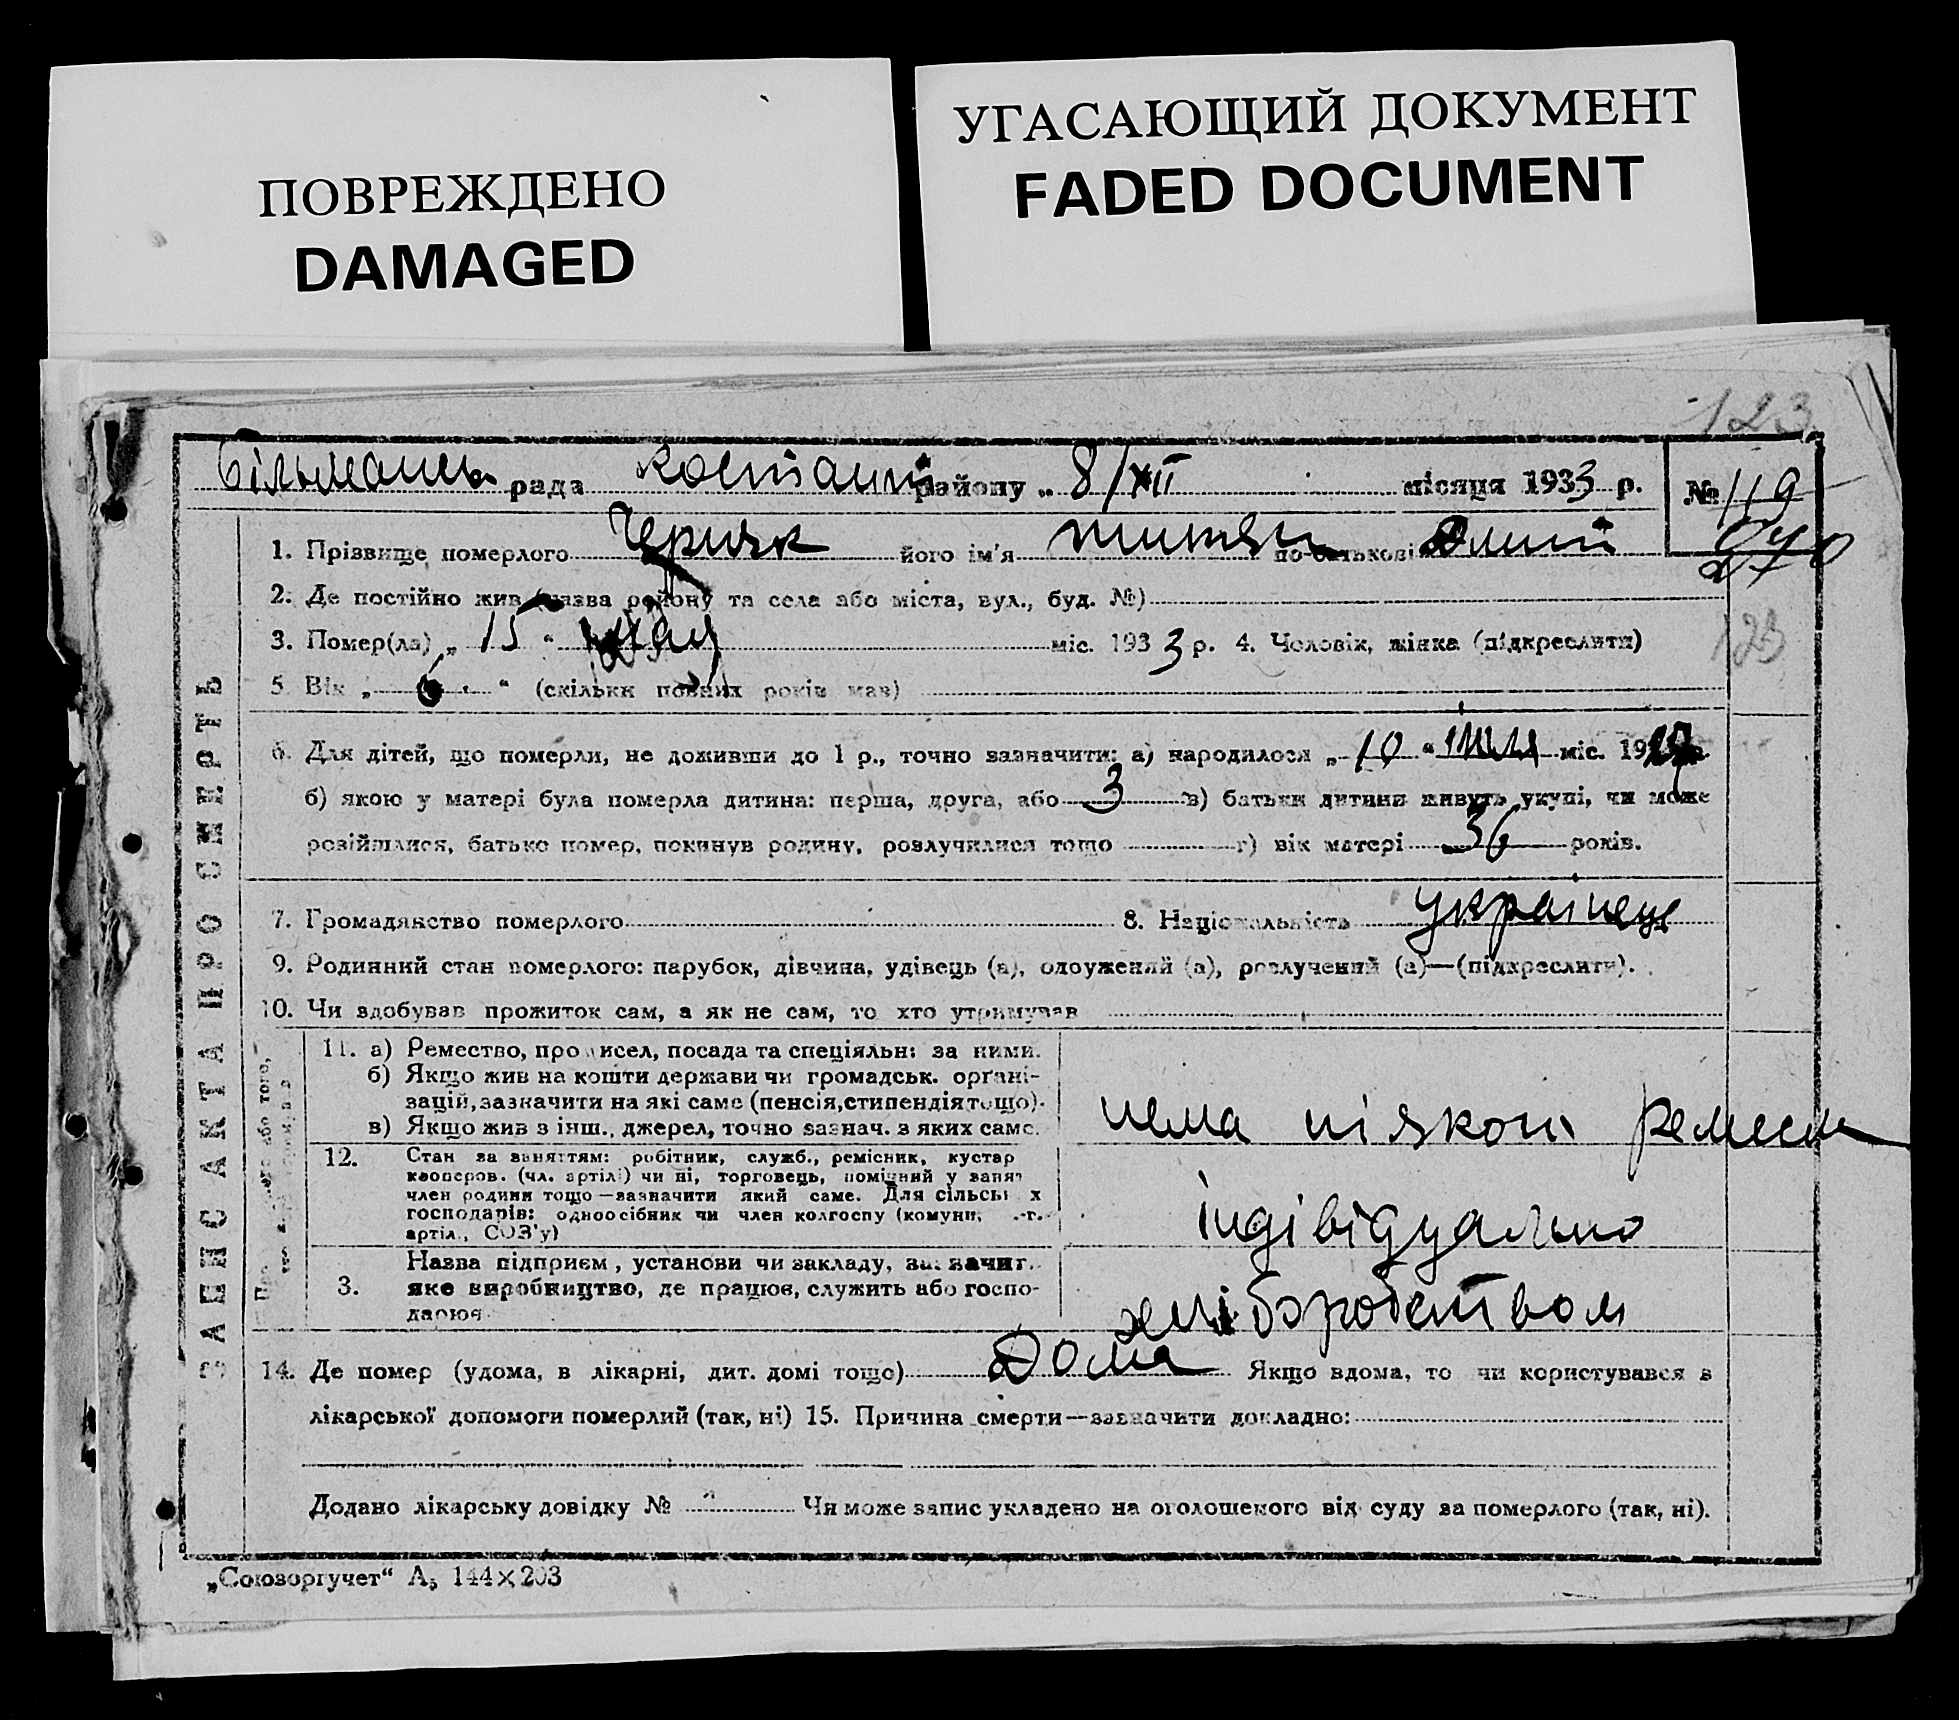 ПОВРЕЖДЕНО
DAMAGED
УГАСАЮЩИЙ ДОКУМЕНТ
FADED DOCUMENT
123
рада району „ 8/XII місяця 1933 р. № 119
270
1. Прізвище померлого його ім'я по-батькові
2. Де постійно жив (назва району та села або міста, вул., буд. №)
3. Помер(ла) „ 15 “ мая міс. 1933 р. 4. Чоловік, жінка (підкреслити)
123
5. Вік „ 6 “ (скільки повних років мав)
6. Для дітей, що померли, не доживши до 1 р., точно зазначити: а) народилося „ 10 “ міс. 1927
б) якою у матері була померла дитина: перша, друга, або 3 в) батьки дитини живуть укупі, чи може
розійшлися, батько помер, покинув родину, розлучилися тощо г) вік матері 36 років.
7. Громадянство померлого 8. Національність українец
9. Родинний стан померлого: парубок, дівчина, удівець (а), одружений (а), розлучений (а)—(підкреслити).
10. Чи здобував прожиток сам, а як не сам, то хто утримував
ЗАПИС АКТА ПРО СМЕРТЬ
11. а) Ремество, промисел, посада та спеціяльн: за ними.
б) Якщо жив на кошти держави чи громадськ. органі-
зацій, зазначити на які саме (пенсія, стипендія тощо).
в) Якщо жив з інш., джерел, точно зазнач. з яких саме.
нема ніякого
12. Стан за заняттям: робітник, служб., ремісник, кустар
кооперов. (чл. артілі) чи ні, торговець, помічний у занят
член родини тощо—зазначити який саме. Для сільськ х
господарів: одноосібник чи член колгоспу (комуни,
артіл., СОЗ'у)
індівідуально
3. Назва підприєм, установи чи закладу, зазначит.
яке виробництво, де працює, служить або госпо-
дарює
14. Де помер (удома, в лікарні, дит. домі тощо) Дома Якщо вдома, то чи користувався з
лікарської допомоги померлий (так, ні) 15. Причина смерти—зазначити докладно:
Додано лікарську довідку № Чи може запис укладено на оголошеного від суду за померлого (так, ні).
„Союзоргучет“ А5 144×203